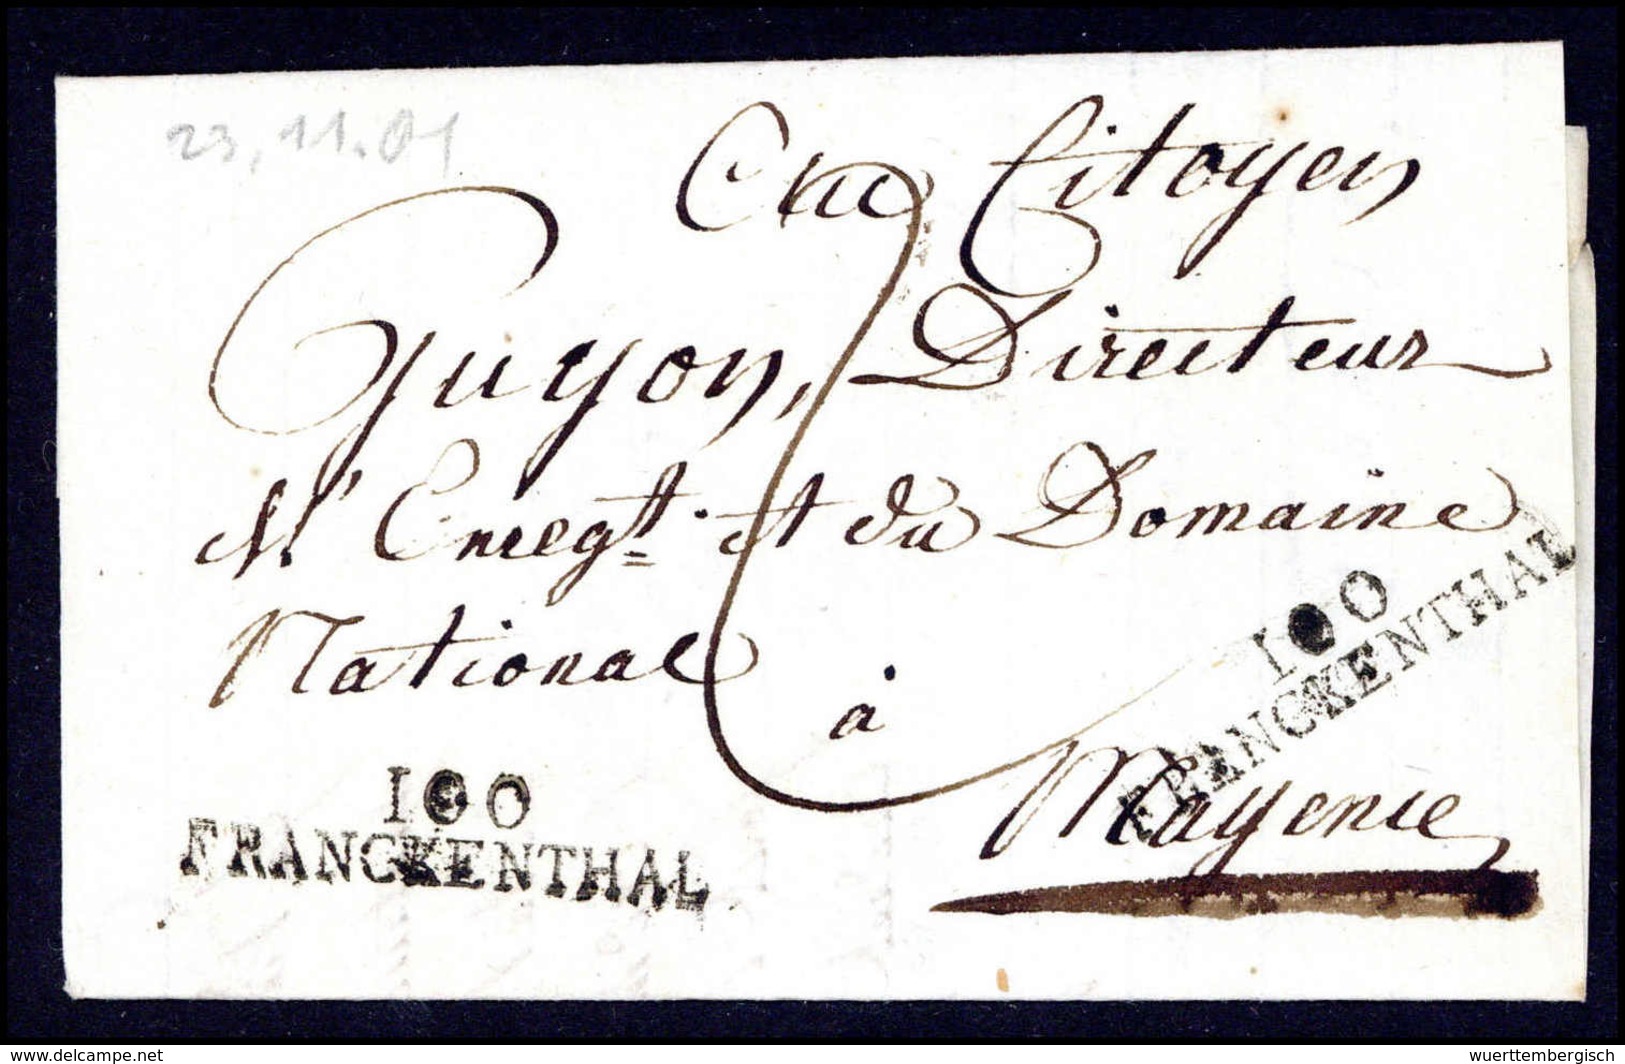 23.11.01
Au Citoyen
Guyon, Directeur
del' Enregt. et du Domaine
National
à
Mayence
100
FRANCKENTHAL
100
FRANCKENTHAL
© www.delcampe.net
wuerttembergisch